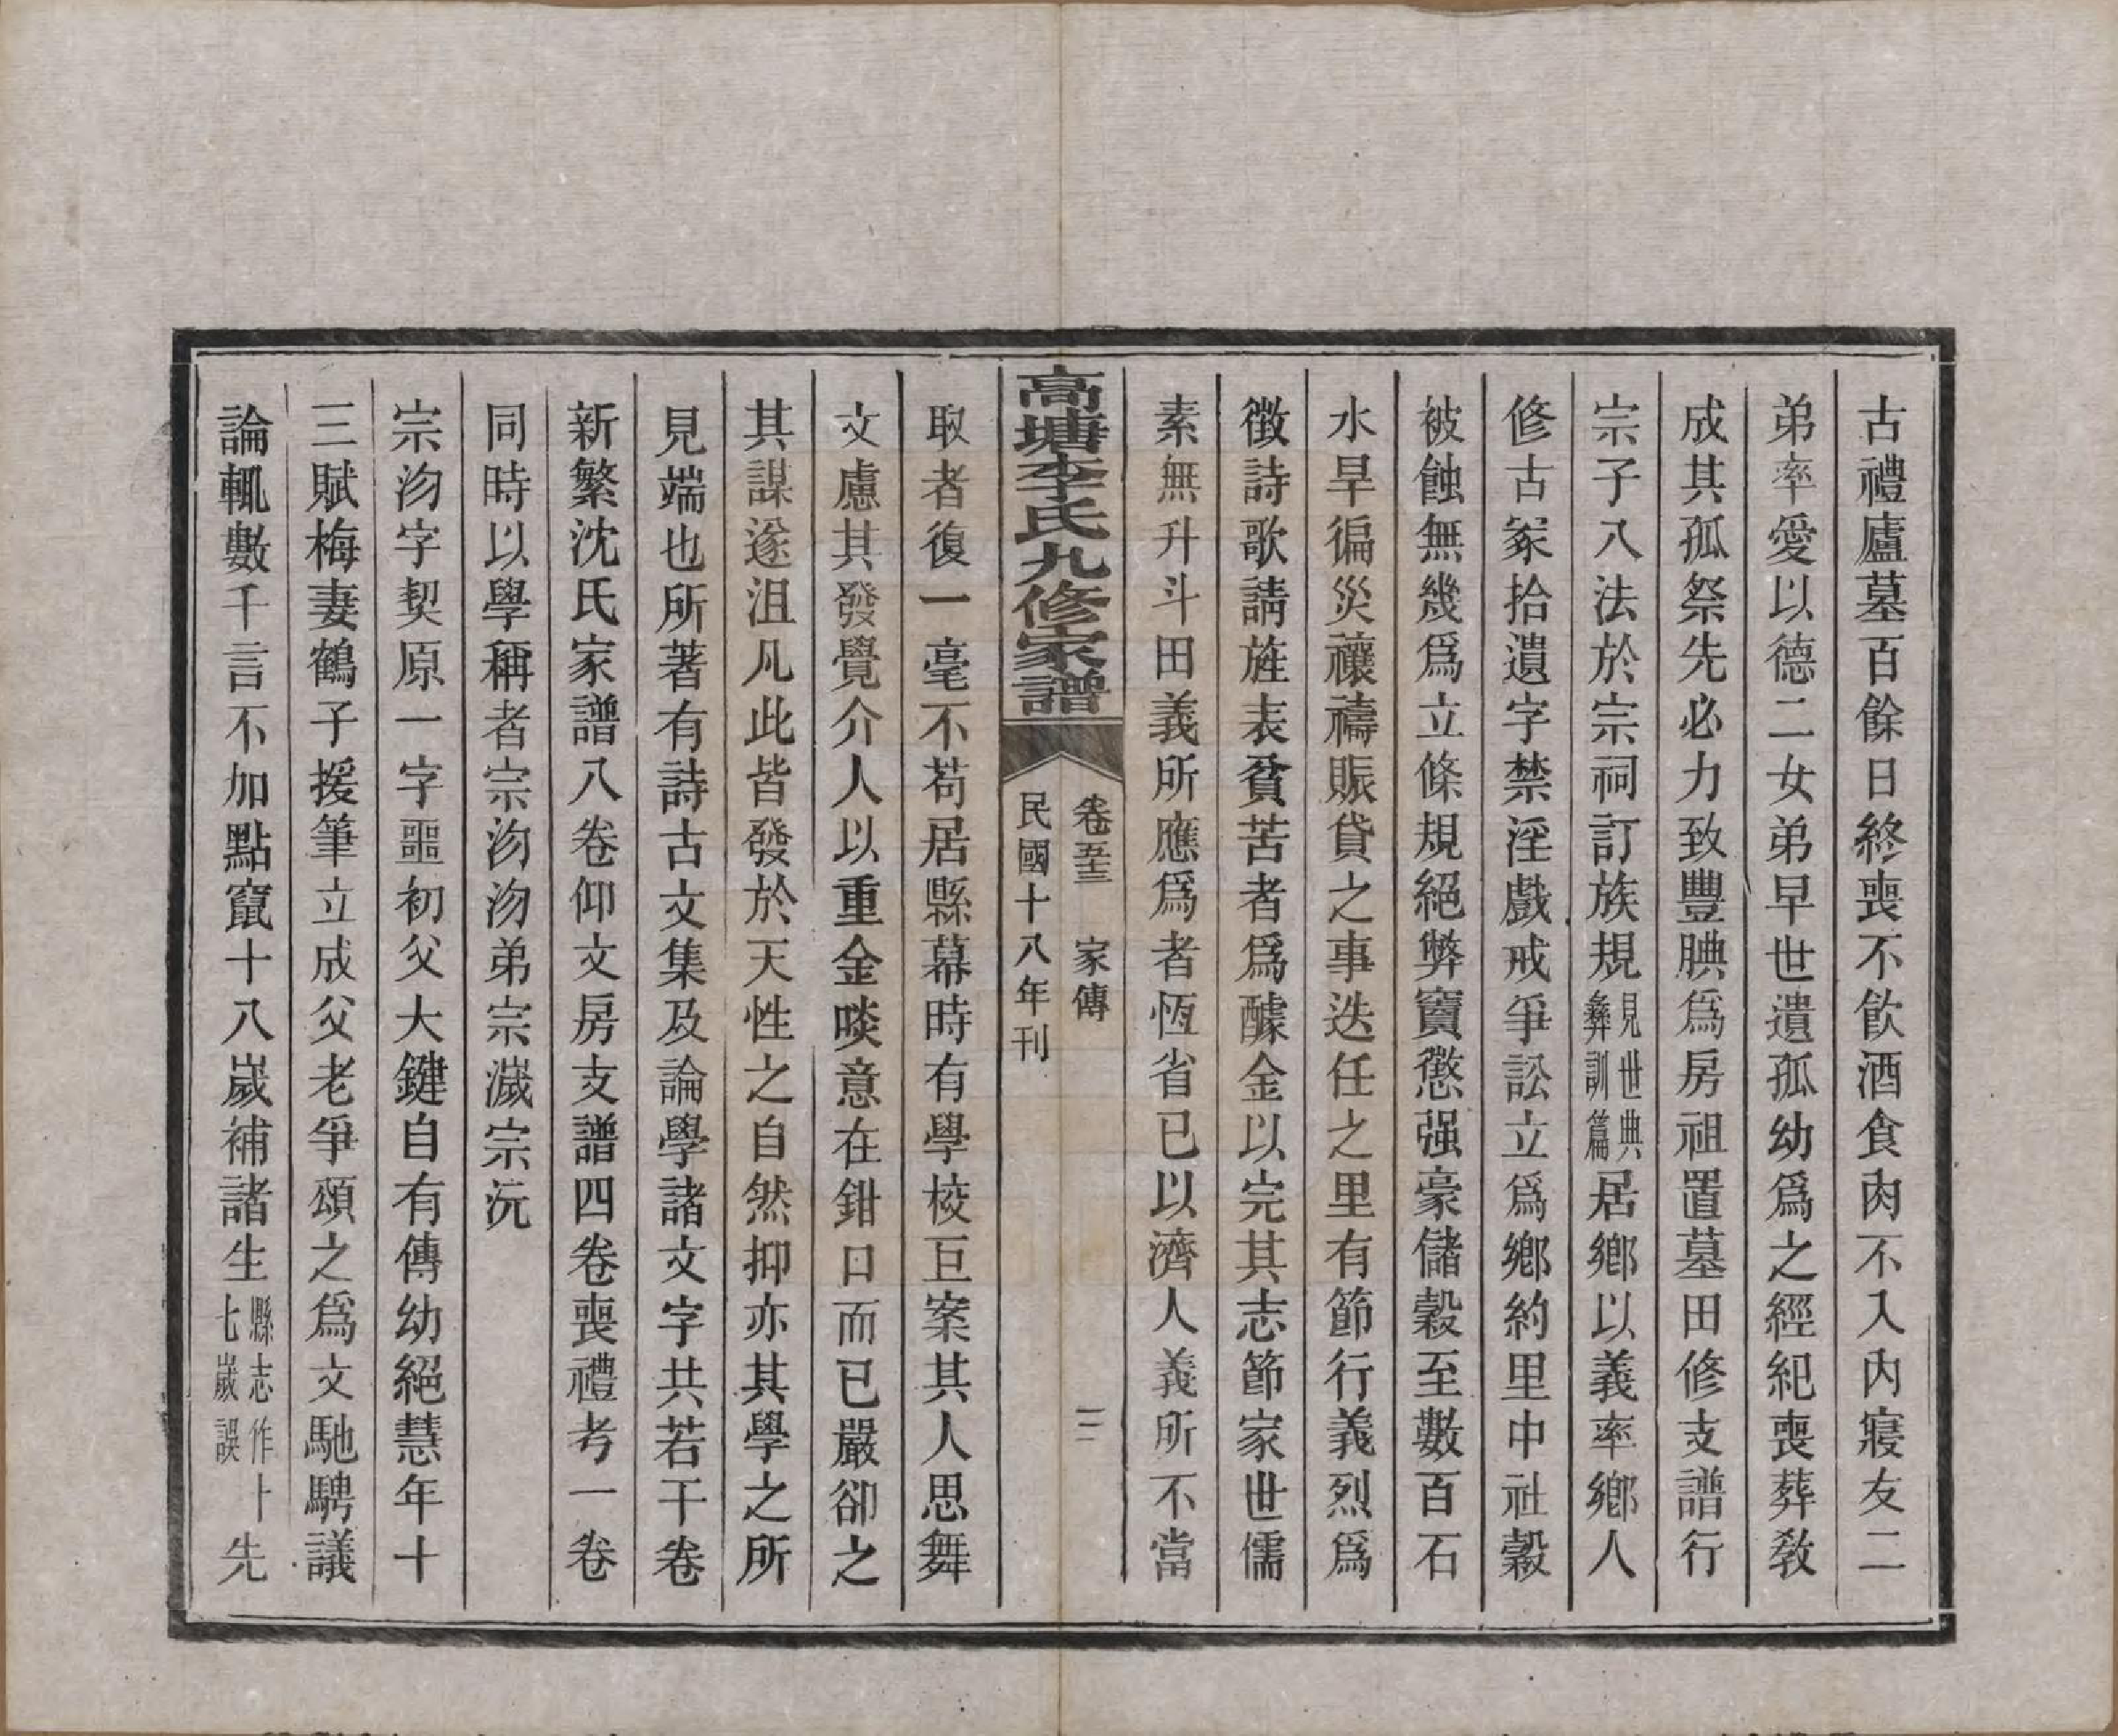 古禮廬墓百餘日終喪不飮酒食肉不入內寢友二
弟率愛以德二女弟早世遺孤幼爲之經紀喪葬敎
成其孤祭先必力致豐腆爲房祖置墓田修支譜行
宗子入法於宗祠訂族規見世典彝訓篇居鄉以義率鄉人
修古冢拾遺字禁淫戲戒爭訟立爲鄉約里中社穀
被蝕無幾爲立條規絕弊竇懲强豪儲穀至數百石
水旱徧災禳禱賑貸之事迭任之里有節行義烈爲
徵詩歌請旌表貧苦者爲醵金以完其志節家世儒
素無升斗田義所應爲者恆省已以濟人義所不當
高塘李氏九修家譜
卷五三 家傳
三
民國十八年刊
取者復一毫不苟居縣幕時有學校巨案其人思舞
文慮其發覺介人以重金啖意在鉗口而已嚴卻之
其謀遂沮凡此皆發於天性之自然抑亦其學之所
見端也所著有詩古文集及論學諸文字共若干卷
新繁沈氏家譜八卷仰文房支譜四卷喪禮考一卷
同時以學稱者宗沕沕弟宗濊宗沅
宗沕字契原一字噩初父大鍵自有傳幼絕慧年十
三賦梅妻鶴子援筆立成父老爭頌之爲文馳騁議
論輒數千言不加點竄十八歲補諸生縣志作十七歲誤先